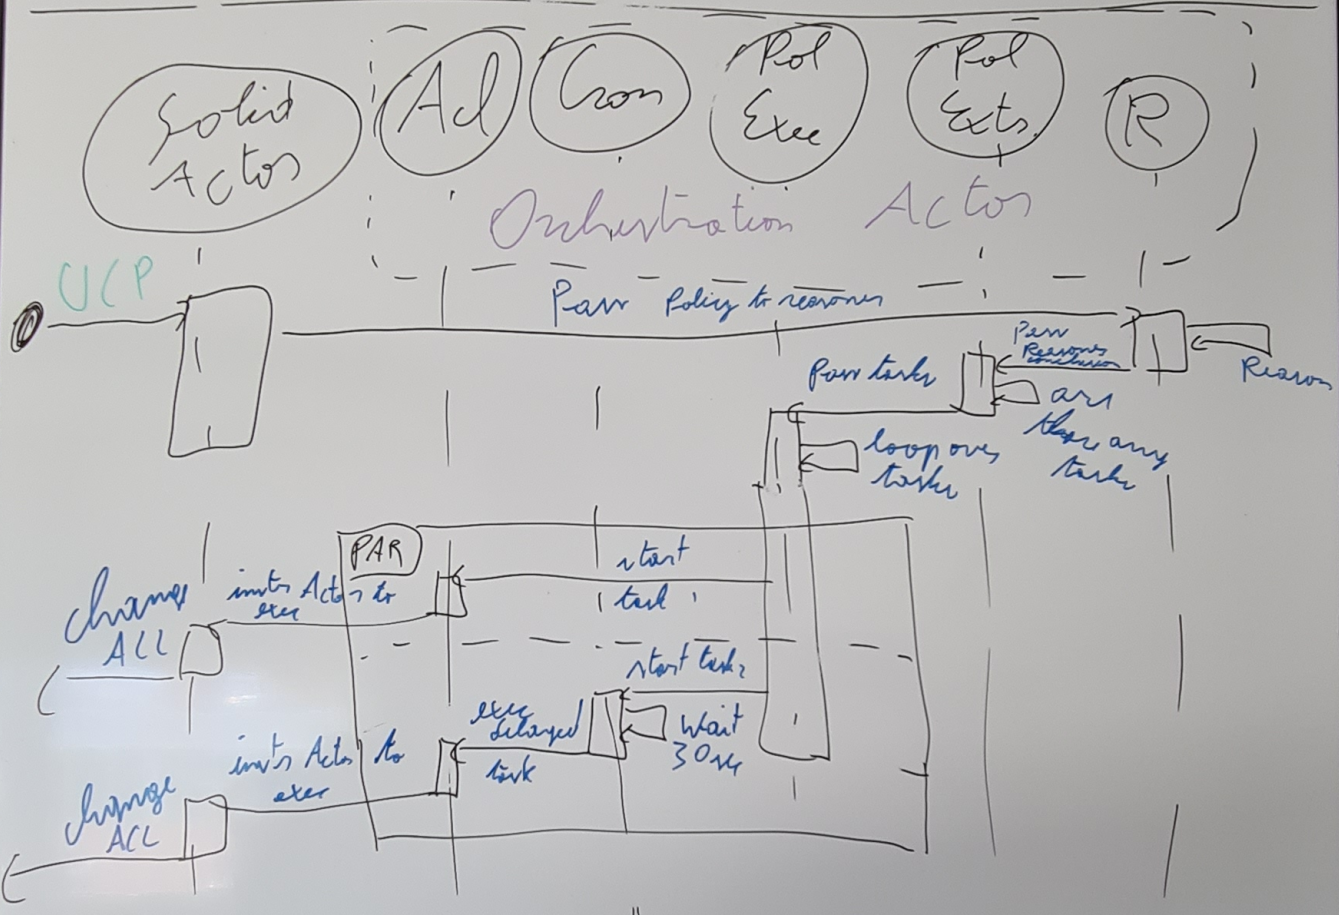 Solid
Actor
Acl
Cron
Pol
Exec
Pol
Extr.
R
Orchestration Actor
UCP
Pass Policy to reasoner
Reason
Pass
Reasoner
conclusion
are
there any
tasks
Pass tasks
loop over
tasks
PAR
start
task 1
instr Actor to
exec
change
ACL
start task 2
Wait
30sec
exec
delayed
task
instr Actor to
exec
change
ACL